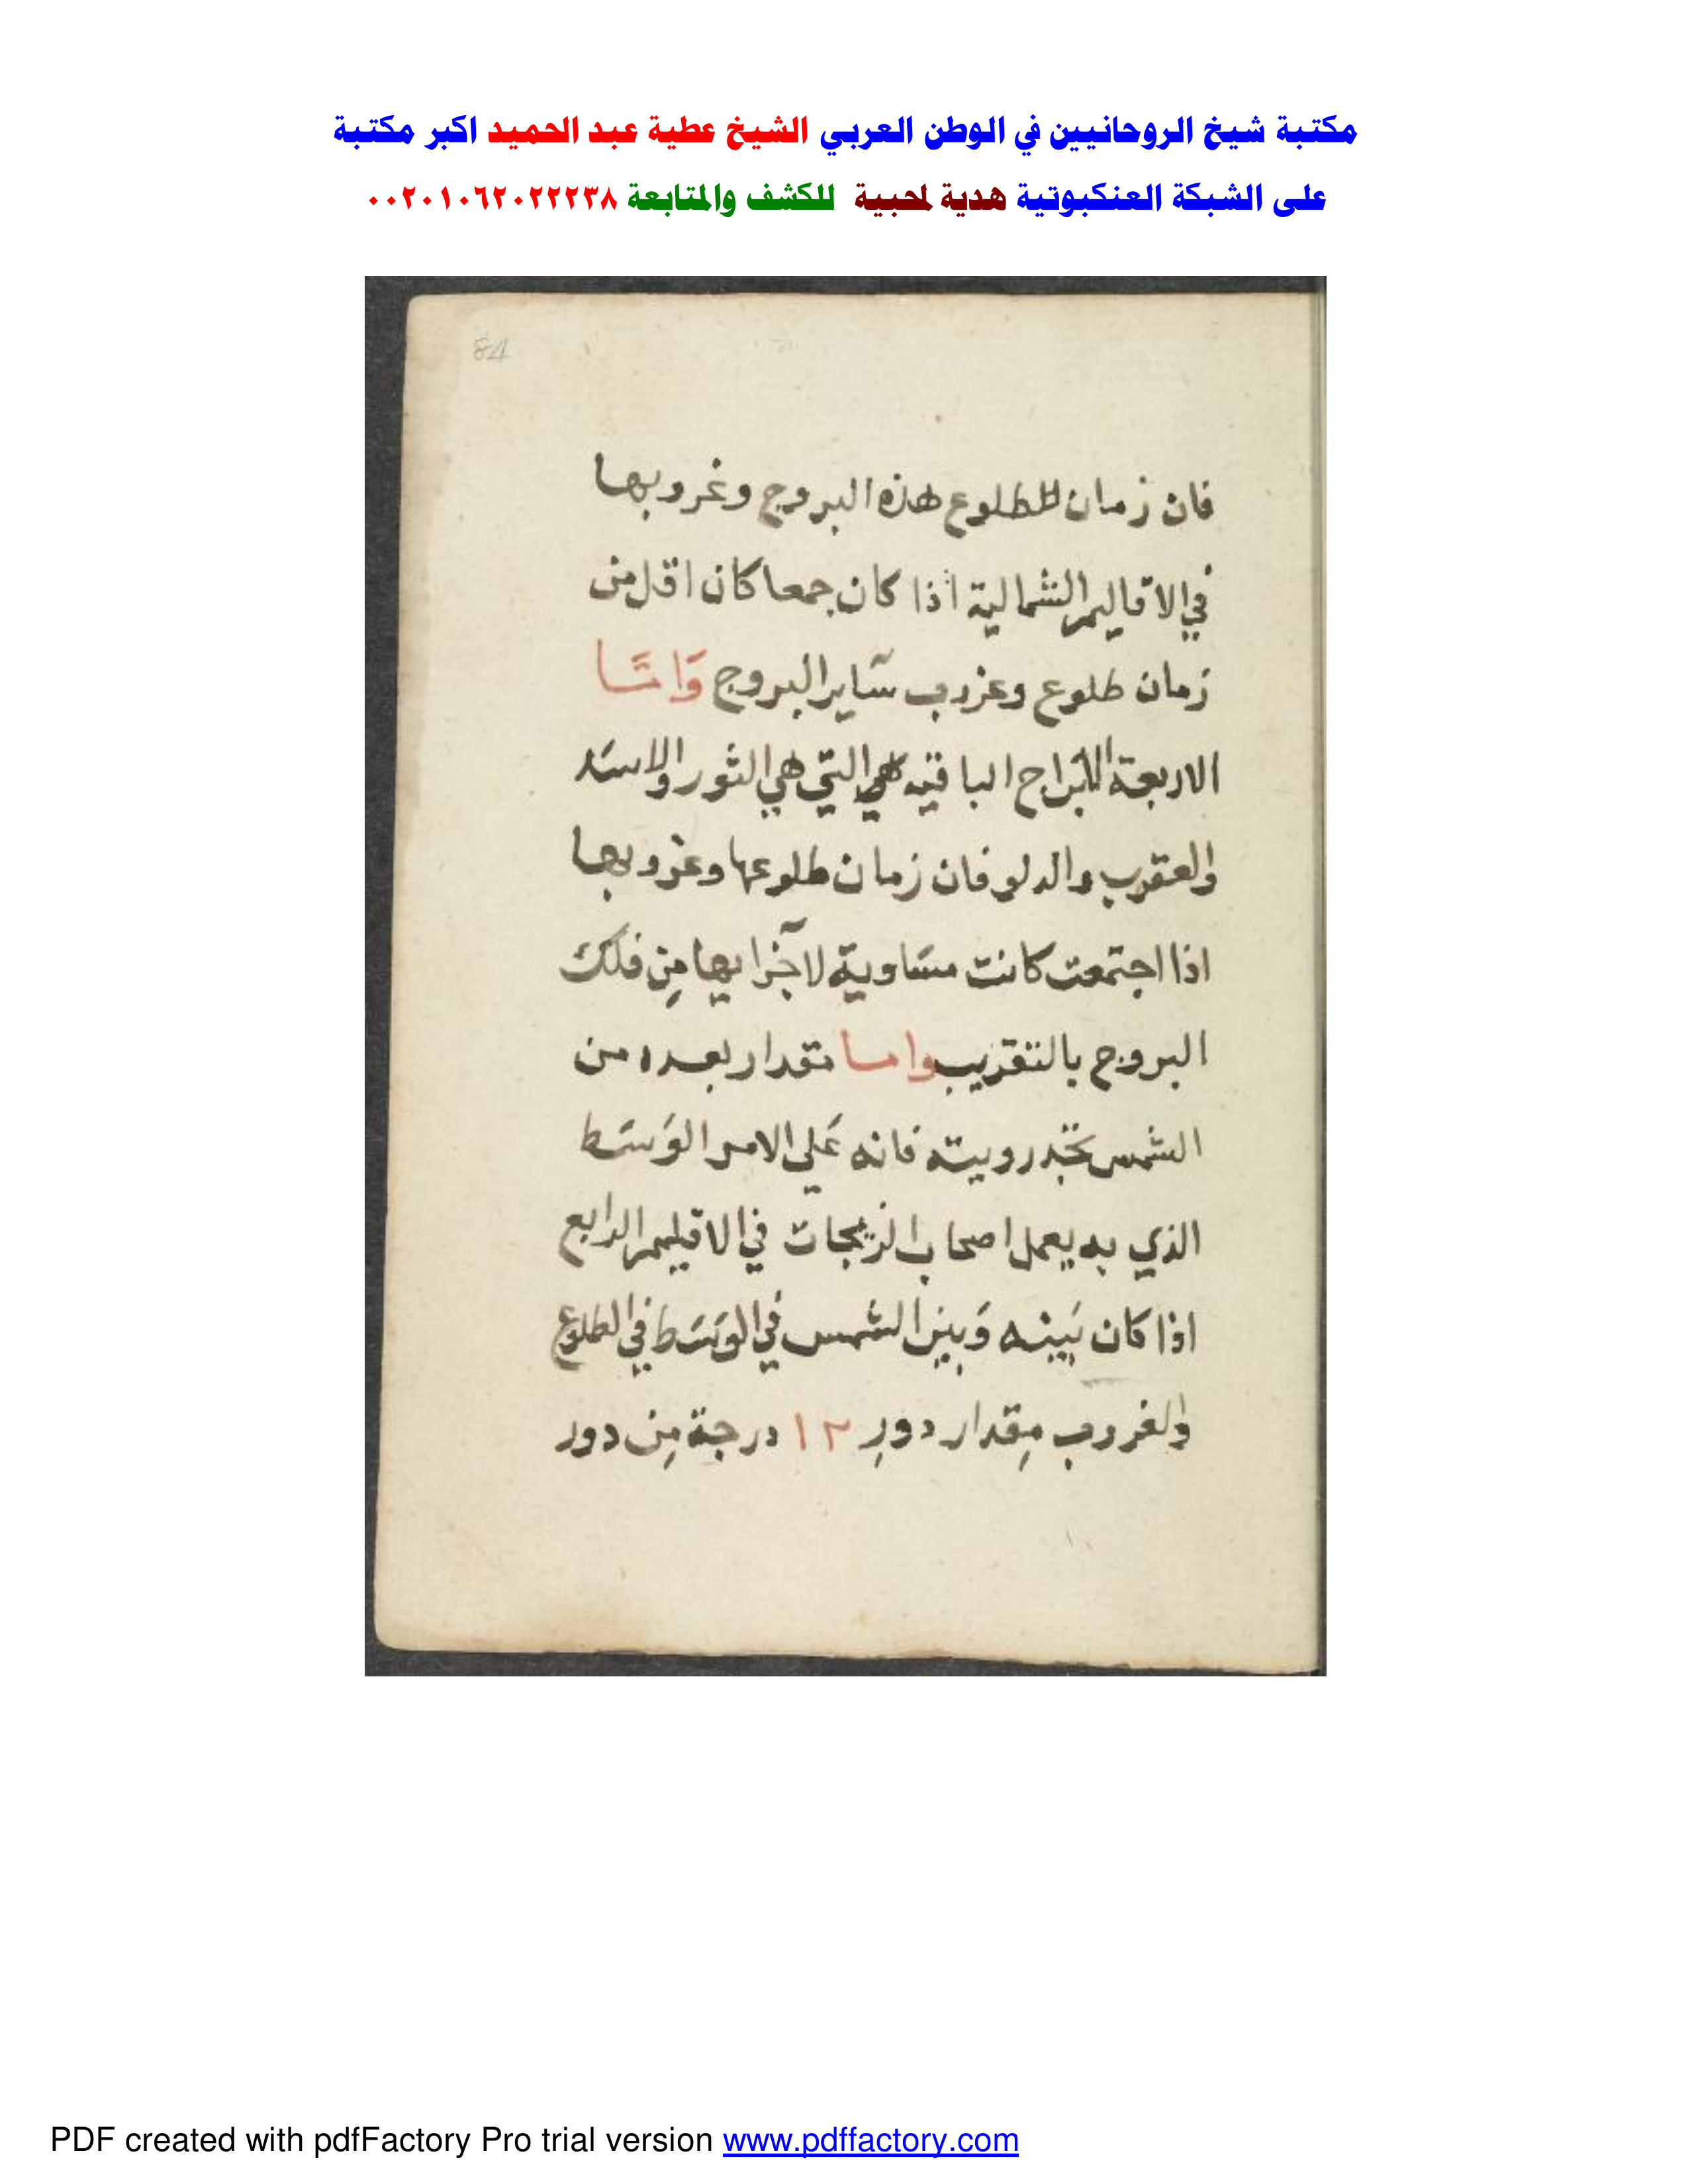 مكتبة شيخ الروحانيين في الوطن العربي الشيخ عطية عبد الحميد اكبر مكتبة
على الشبكة العنكبوتية هدية لمحبية للكشف والمتابعة ٠٠٢٠١٠٦٢٠٢٢٢٣٨
84
فان زمان للطلوع هذه البروج وغروبها
في الاقاليم الشمالية اذا كان جمعا كان اقل من
زمان طلوع وعزوب سَاير البروج وَامّا
الاربعة الابراج الباقيه هي التي هي الثور والاسَد
والعقرب والدلو فان زمان طلوعها وعزوبها
اذا اجتمعت كانت مسَاوية لآجزايها مِن فلك
البروج بالتقريب واما مقدار بعده من
الشمس رويته فانه عَلي الامر الوَسَط
الذي به يعمل اصحاب الزيجات في الاقليم الرابع
اذا كان بَينه وَبين الشمس في الوَسَط في الطلوع
والغروب مِقدار دورِ ١٢ درجة مِن دور
PDF created with pdfFactory Pro trial version www.pdffactory.com